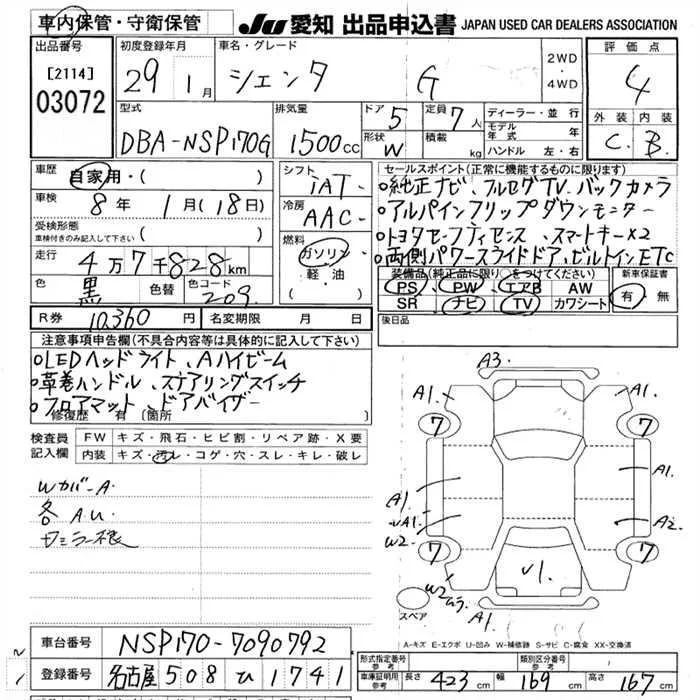 車内保管・守衛保管
JU愛知 出品申込書 JAPAN USED CAR DEALERS ASSOCIATION
出品番号 [2114] 03072
初度登録年月 29 1月
車名・グレード シエンタ G
2WD・4WD
評価点 4
外装 内装 C. B.
型式 DBA-NSP170G
排気量 1500cc
ドア 5 定員 7人
形状 W 積載 kg
ディーラー・並行
モデル年式 年
ハンドル 左・右
車歴 自家用・( )
車検 8年 1月(18日)
受検形態 車検付きのみ記入して下さい ・( )
走行 4万7千828km
色 黒 色替 色コード 209
シフト IAT
冷房 AAC
燃料 ガソリン 軽油 ( )
セールスポイント(正常に機能するものに限ります)
・純正ナビ、フルセグTV、バックカメラ
・アルパインフリップダウンモニター
・トヨタセーフティセンス、スマートキー×2
・両側パワースライドドア、ビルトインETC
装備品(純正品に限り)をつけてください
PS PW エアB AW
SR ナビ TV カワシート
新車保証書 有・無
R券 10,360円 名変期限 月 日
後日品
注意事項申告欄(不具合内容等は具体的に記入して下さい)
○LEDヘッドライト、Aハイビーム
○革巻ハンドル、ステアリングスイッチ
○フロアマット、ドアバイザー
修復歴 有 [箇所 ]
検査員記入欄 FW キズ・飛石・ヒビ割・リペア跡・X要
内装 キズ・汚レ・コゲ・穴・スレ・キレ・破レ
WカバーA.
各 A.U.
A3.
A1. A1.
7 7
A1. A1.
VA1. A2
W2
7 7
V1.
W2ムラ
A1.
スペア
A-キズ E-エクボ U-凹み W-補修跡 S-サビ C-腐食 XX-交換済
車台番号 NSP170-7090792
登録番号 名古屋 508 ひ 1741
形式指定番号 参考 類別区分番号 参考
車庫証明用 参考 長さ 423cm 幅 169cm 高さ 167cm